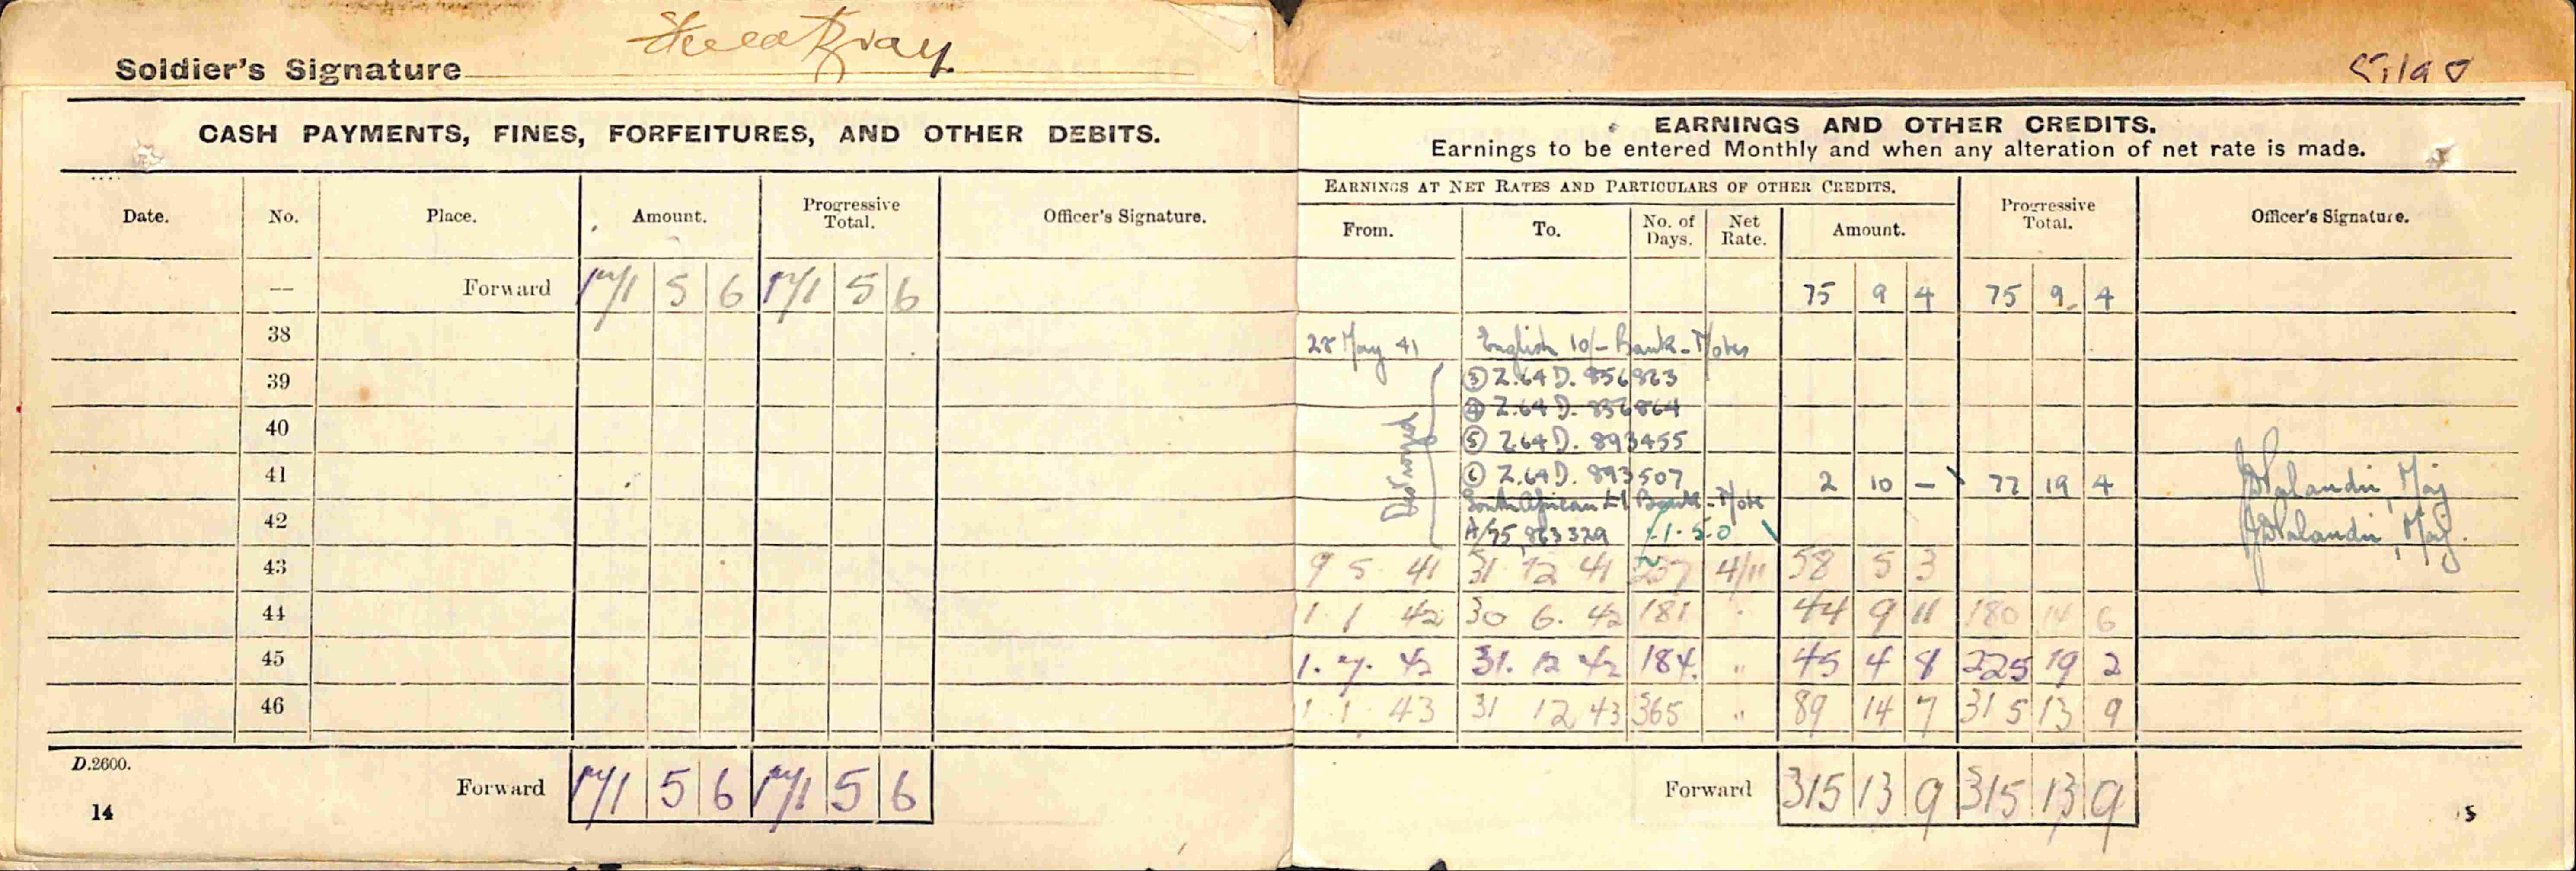 Soldier's Signature
CASH PAYMENTS, FINES, FORFEITURES, AND OTHER DEBITS.
Date. No. Place. Amount. Progressive Total. Officer's Signature.
— Forward 171 5 6 171 5 6
38
39
40
41
42
43
44
45
46
D.2600.
Forward 171 5 6 171 5 6
14
EARNINGS AND OTHER CREDITS.
Earnings to be entered Monthly and when any alteration of net rate is made.
EARNINGS AT NET RATES AND PARTICULARS OF OTHER CREDITS.
From. To. No. of Days. Net Rate. Amount. Progressive Total. Officer's Signature.
75 9 4 75 9 4
28 May 41 English 10/- Bank-Notes
Destroyed
③ Z.64 D. 856863
④ Z.64 D. 856864
⑤ Z.64 D. 893455
⑥ Z.64 D. 893507 2 10 — 77 19 4
South African £1 Bank-Note
A/75 863329 £1.5.0
9 5 41 31 12 41 237 4/11 58 5 3
1 1 42 30 6. 42 181 " 44 9 11 180 14 6
1. 7. 42 31. 12 42 184. " 45 4 8 225 19 2
1 1 43 31 12 43 365 " 89 14 7 315 13 9
Forward 315 13 9 315 13 9